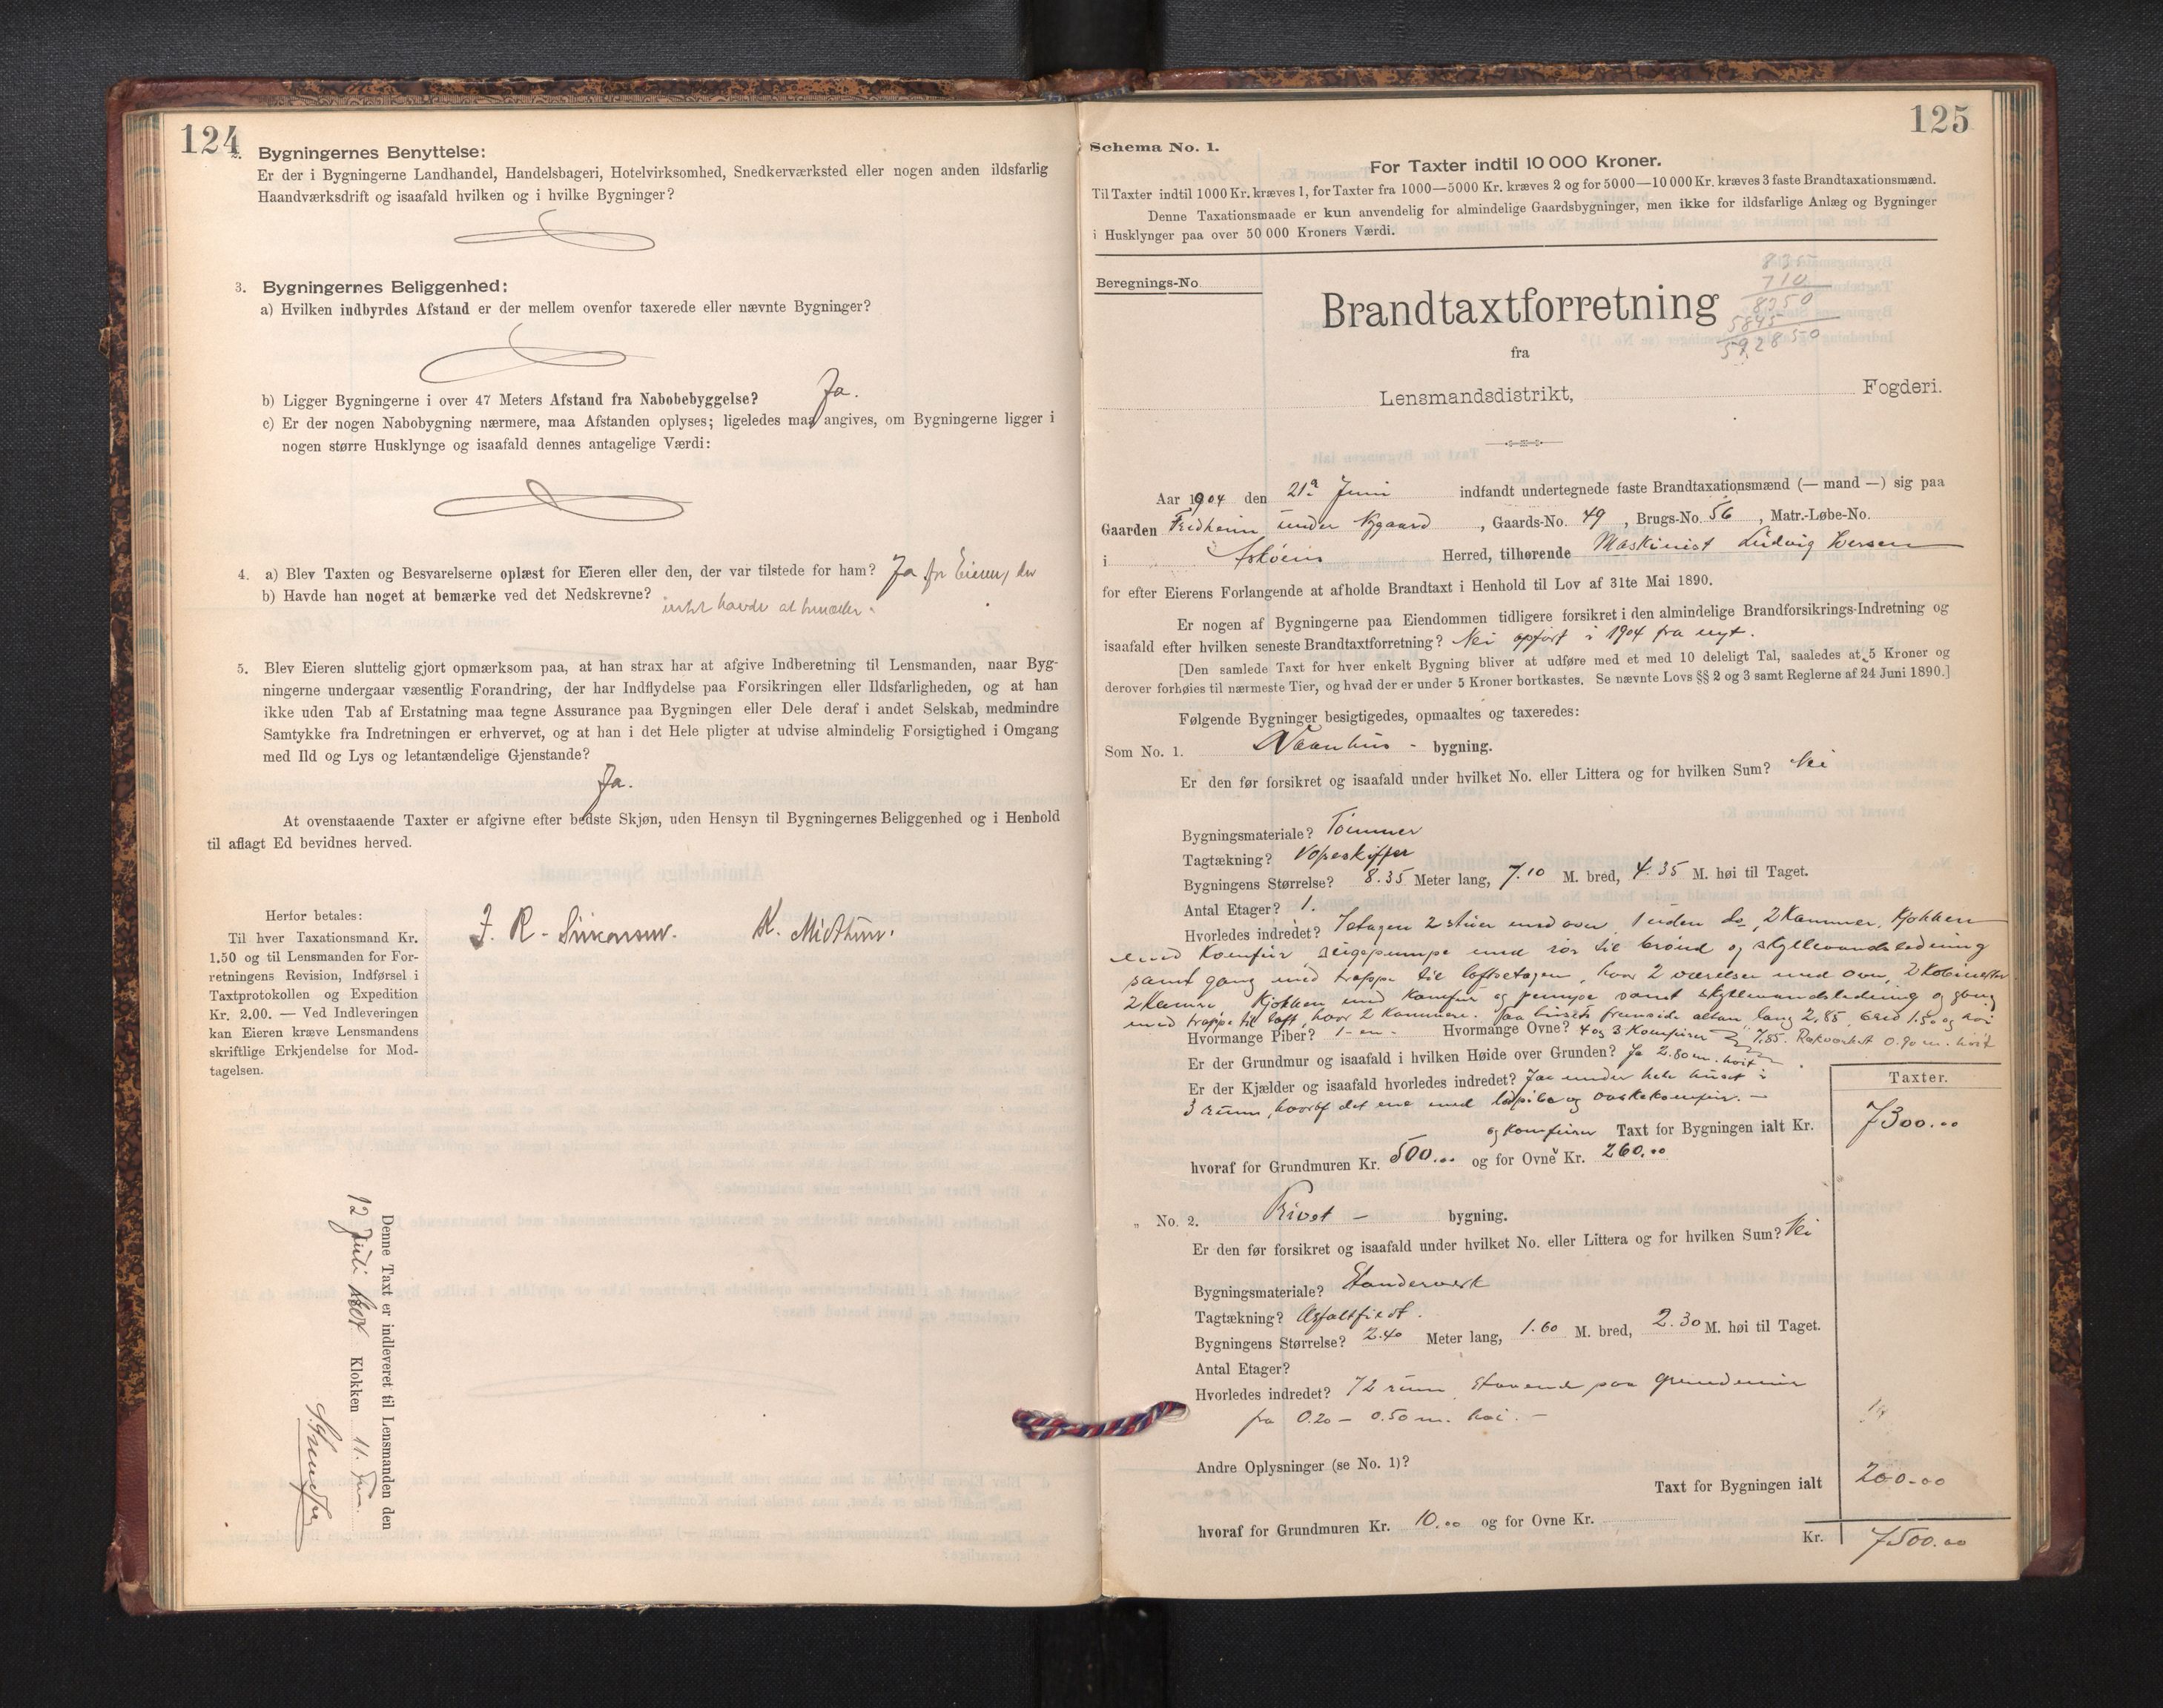 124
2. Bygningernes Benyttelse:
Er der i Bygningerne Landhandel, Handelsbageri, Hotelvirksomhed, Snedkerværksted eller nogen anden ildsfarlig
Haandværksdrift og isaafald hvilken og i hvilke Bygninger?
3. Bygningernes Beliggenhed:
a) Hvilken indbyrdes Afstand er der mellem ovenfor taxerede eller nævnte Bygninger?
b) Ligger Bygningerne i over 47 Meters Afstand fra Nabobebyggelse? Ja.
c) Er der nogen Nabobygning nærmere, maa Afstanden oplyses; ligeledes maa angives, om Bygningerne ligger i
nogen større Husklynge og isaafald dennes antagelige Værdi:
4. a) Blev Taxten og Besvarelserne oplæst for Eieren eller den, der var tilstede for ham? Ja for Eieren, der
b) Havde han noget at bemærke ved det Nedskrevne? intet havde at bemærke.
5. Blev Eieren sluttelig gjort opmærksom paa, at han strax har at afgive Indberetning til Lensmanden, naar Byg-
ningerne undergaar væsentlig Forandring, der har Indflydelse paa Forsikringen eller Ildsfarligheden, og at han
ikke uden Tab af Erstatning maa tegne Assurance paa Bygningen eller Dele deraf i andet Selskab, medmindre
Samtykke fra Indretningen er erhvervet, og at han i det Hele pligter at udvise almindelig Forsigtighed i Omgang
med Ild og Lys og letantændelige Gjenstande?
Ja.
At ovenstaaende Taxter er afgivne efter bedste Skjøn, uden Hensyn til Bygningernes Beliggenhed og i Henhold
til aflagt Ed bevidnes herved.
Herfor betales:
Til hver Taxationsmand Kr.
1.50 og til Lensmanden for For-
retningens Revision, Indførsel i
Taxtprotokollen og Expedition
Kr. 2.00. — Ved Indleveringen
kan Eieren kræve Lensmandens
skriftlige Erkjendelse for Mod-
tagelsen.
J. R. K. Midthun.
Denne Taxt er indleveret til Lensmanden den
12 Juli 1904 Klokken 11. Fm.
125
Schema No. 1.
For Taxter indtil 10 000 Kroner.
Til Taxter indtil 1000 Kr. kræves 1, for Taxter fra 1000—5000 Kr. kræves 2 og for 5000—10 000 Kr. kræves 3 faste Brandtaxationsmænd.
Denne Taxationsmaade er kun anvendelig for almindelige Gaardsbygninger, men ikke for ildsfarlige Anlæg og Bygninger
i Husklynger paa over 50 000 Kroners Værdi.
Beregnings-No.
835
710
8350
5845
592850
Brandtaxtforretning
fra
Lensmandsdistrikt, Fogderi.
Aar 1904 den 21de Juni indfandt undertegnede faste Brandtaxationsmænd (— mand —) sig paa
Gaarden Fredheim under Nygaard, Gaards-No. 49, Brugs-No. 56, Matr.-Løbe-No.
i Askøens Herred, tilhørende Maskinist Ludvig Iversen
for efter Eierens Forlangende at afholde Brandtaxt i Henhold til Lov af 31te Mai 1890.
Er nogen af Bygningerne paa Eiendommen tidligere forsikret i den almindelige Brandforsikrings-Indretning og
isaafald efter hvilken seneste Brandtaxtforretning? Nei opført i 1904 fra nyt.
[Den samlede Taxt for hver enkelt Bygning bliver at udføre med et med 10 deleligt Tal, saaledes at 5 Kroner og
derover forhøies til nærmeste Tier, og hvad der er under 5 Kroner bortkastes. Se nævnte Lovs §§ 2 og 3 samt Reglerne af 24 Juni 1890.]
Følgende Bygninger besigtigedes, opmaaltes og taxeredes:
Som No. 1. Vaanhus - bygning.
Er den før forsikret og isaafald under hvilket No. eller Littera og for hvilken Sum? Nei
Bygningsmateriale? Tømmer
Tagtækning? Vosseskiffer
Bygningens Størrelse? 8.35 Meter lang, 7.10 M. bred, 4.35 M. høi til Taget.
Antal Etager? 1.
Hvorledes indredet? 1 etagen 2 stuer med ovn, 1 uden do, 2 Kammer, Kjøkken
med Komfur, pumpe med rør til brønd og skyllevandsledning
samt gang med trappe til loftsetagen, hvor 2 værelser med ovn,
2 Kamre, Kjøkken med Komfur og pumpe samt skyllevandsledning og gang
med trappe til loft, hvor 2 Kammere. Paa husets fremside altan lang 2,85, bred 1.50 og høi
Hvormange Piber? 1 - en - Hvormange Ovne? 4 og 3 Komfurer 7,85. Rækværket 0.90 m. høit
Er der Grundmur og isaafald i hvilken Høide over Grunden? Ja 2.80 m. høit
Er der Kjælder og isaafald hvorledes indredet? Jaa under hele huset i
3 rum, hvoraf det ene med og vaskekomfur. —
Taxter.
og komfurer Taxt for Bygningen ialt Kr. 7300.00
hvoraf for Grundmuren Kr. 500.00 og for Ovne Kr. 260.00
„ No. 2. Privet - bygning.
Er den før forsikret og isaafald under hvilket No. eller Littera og for hvilken Sum? Nei
Bygningsmateriale? Standerverk
Tagtækning? Asfaltfilt.
Bygningens Størrelse? 2.40 Meter lang, 1.60 M. bred, 2.30 M. høi til Taget.
Antal Etager?
Hvorledes indredet? I 2 rum, staaende paa grundmur
fra 0.20 — 0.50 m. høi. —
Andre Oplysninger (se No. 1)?
Taxt for Bygningen ialt 200.00
hvoraf for Grundmuren Kr. 10.00 og for Ovne Kr.
Kr. 7500.00